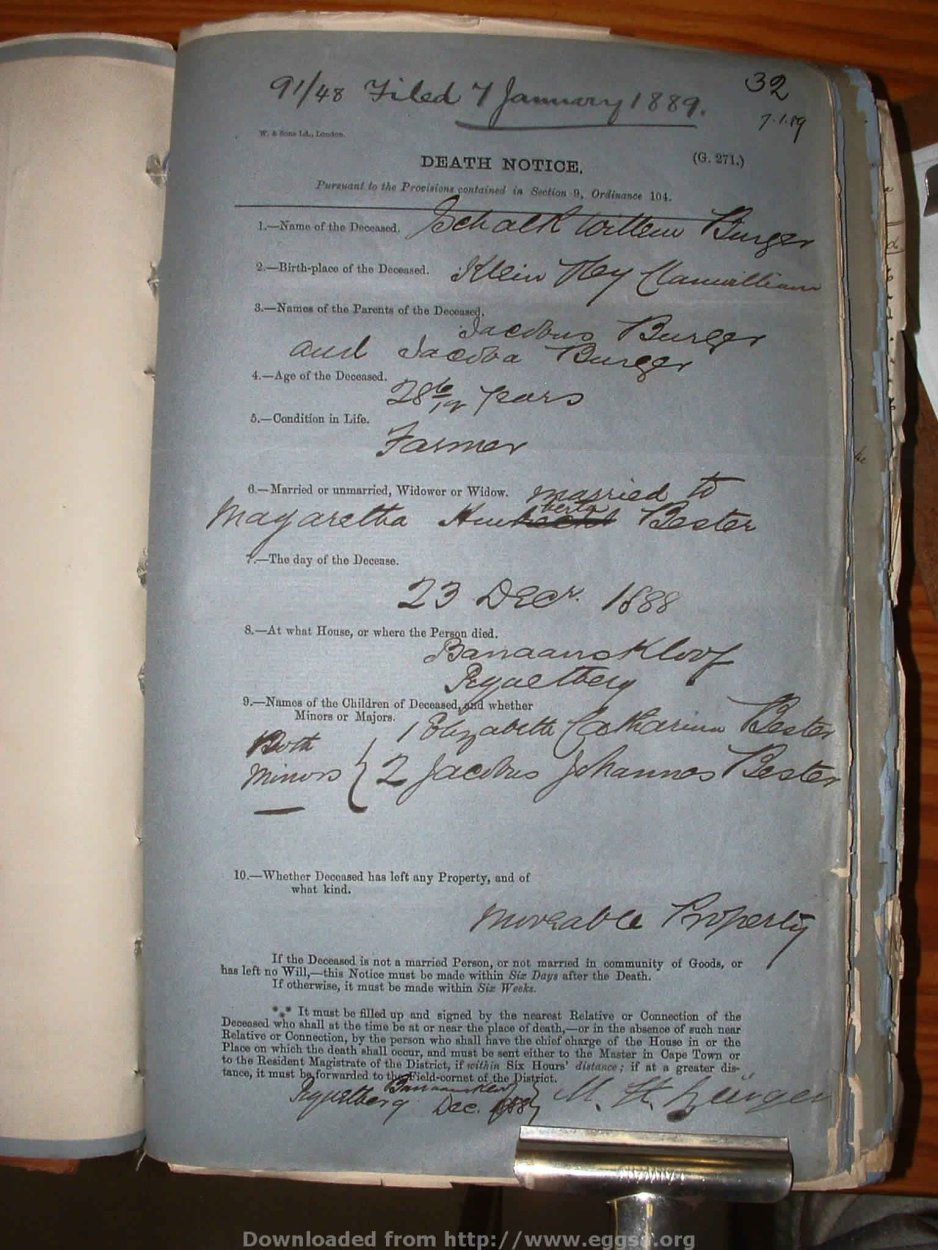 91/48 Filed 7 January 1889.
32
7.1.89
W. & Sons Ld., London.
(G. 271.)
DEATH NOTICE,
Pursuant to the Provisions contained in Section 9, Ordinance 104.
1.—Name of the Deceased. Schalk Willem Burger
2.—Birth-place of the Deceased. Klein Vley Clanwilliam
3.—Names of the Parents of the Deceased.
Jacobus Burger
and Jacoba Burger
4.—Age of the Deceased.
28 6/12 Years
5.—Condition in Life.
Farmer
6.—Married or unmarried, Widower or Widow. married to
berta
Magaretha Bester
7.—The day of the Decease.
23 Decr. 1888
8.—At what House, or where the Person died.
Banaanskloof
9.—Names of the Children of Deceased, and whether
Minors or Majors.
1 Elizabeth Catharina Bester
Both
Minors } 2 Jacobus Johannes Bester
10.—Whether Deceased has left any Property, and of
what kind.
Moveable Property
If the Deceased is not a married Person, or not married in community of Goods, or
has left no Will,—this Notice must be made within Six Days after the Death.
If otherwise, it must be made within Six Weeks.
*** It must be filled up and signed by the nearest Relative or Connection of the
Deceased who shall at the time be at or near the place of death,—or in the absence of such near
Relative or Connection, by the person who shall have the chief charge of the House in or the
Place on which the death shall occur, and must be sent either to the Master in Cape Town or
to the Resident Magistrate of the District, if within Six Hours' distance; if at a greater dis-
tance, it must be forwarded to the Field-cornet of the District.
Dec. M. H. Burger
Downloaded from http://www.eggsa.org